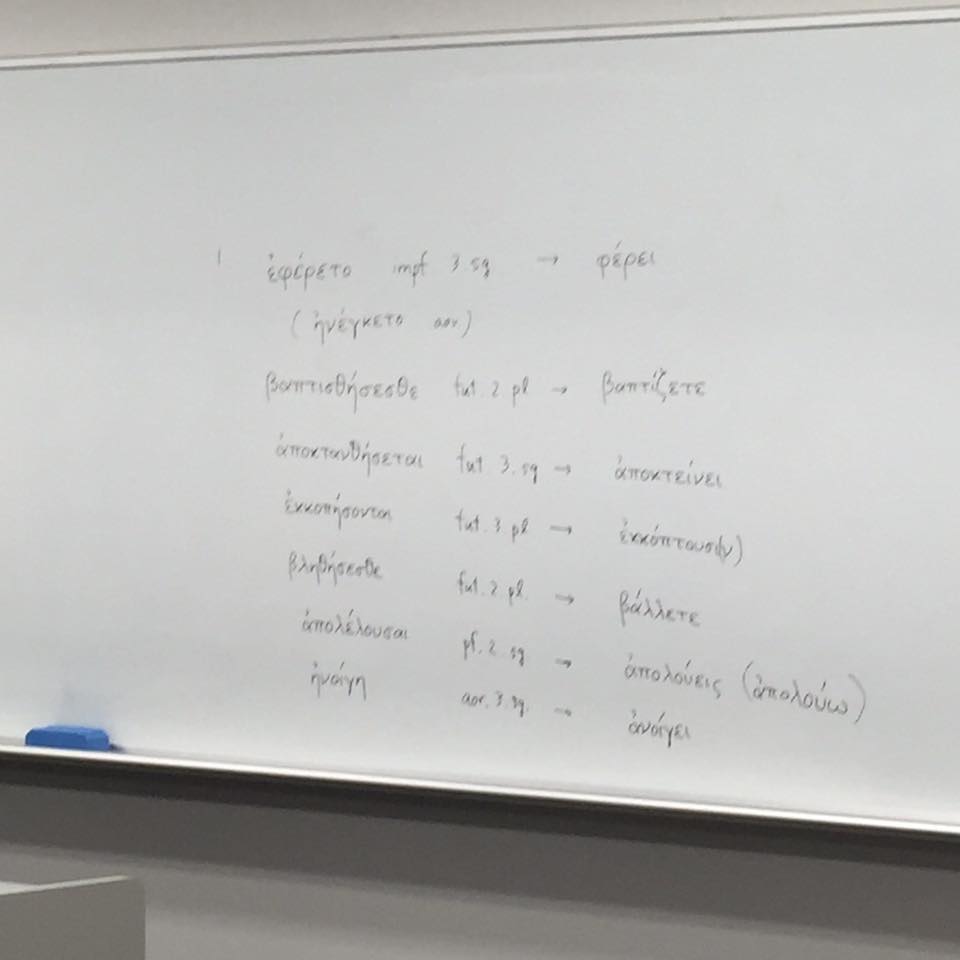 1 ἐφέρετο impf 3.sg → φέρει
(ἠνέγκετο aor.)
βαπτισθήσεσθε fut. 2 pl → βαπτίζετε
ἀποκτανθήσεται fut 3.sg → ἀποκτείνει
ἐκκοπήσονται fut. 3 pl → ἐκκόπτουσι(ν)
βληθήσεσθε fut. 2 pl. → βάλλετε
ἀπολέλουσαι pf. 2 sg → ἀπολούεις (ἀπολούω)
ἠνοίγη aor. 3.sg. → ἀνοίγει